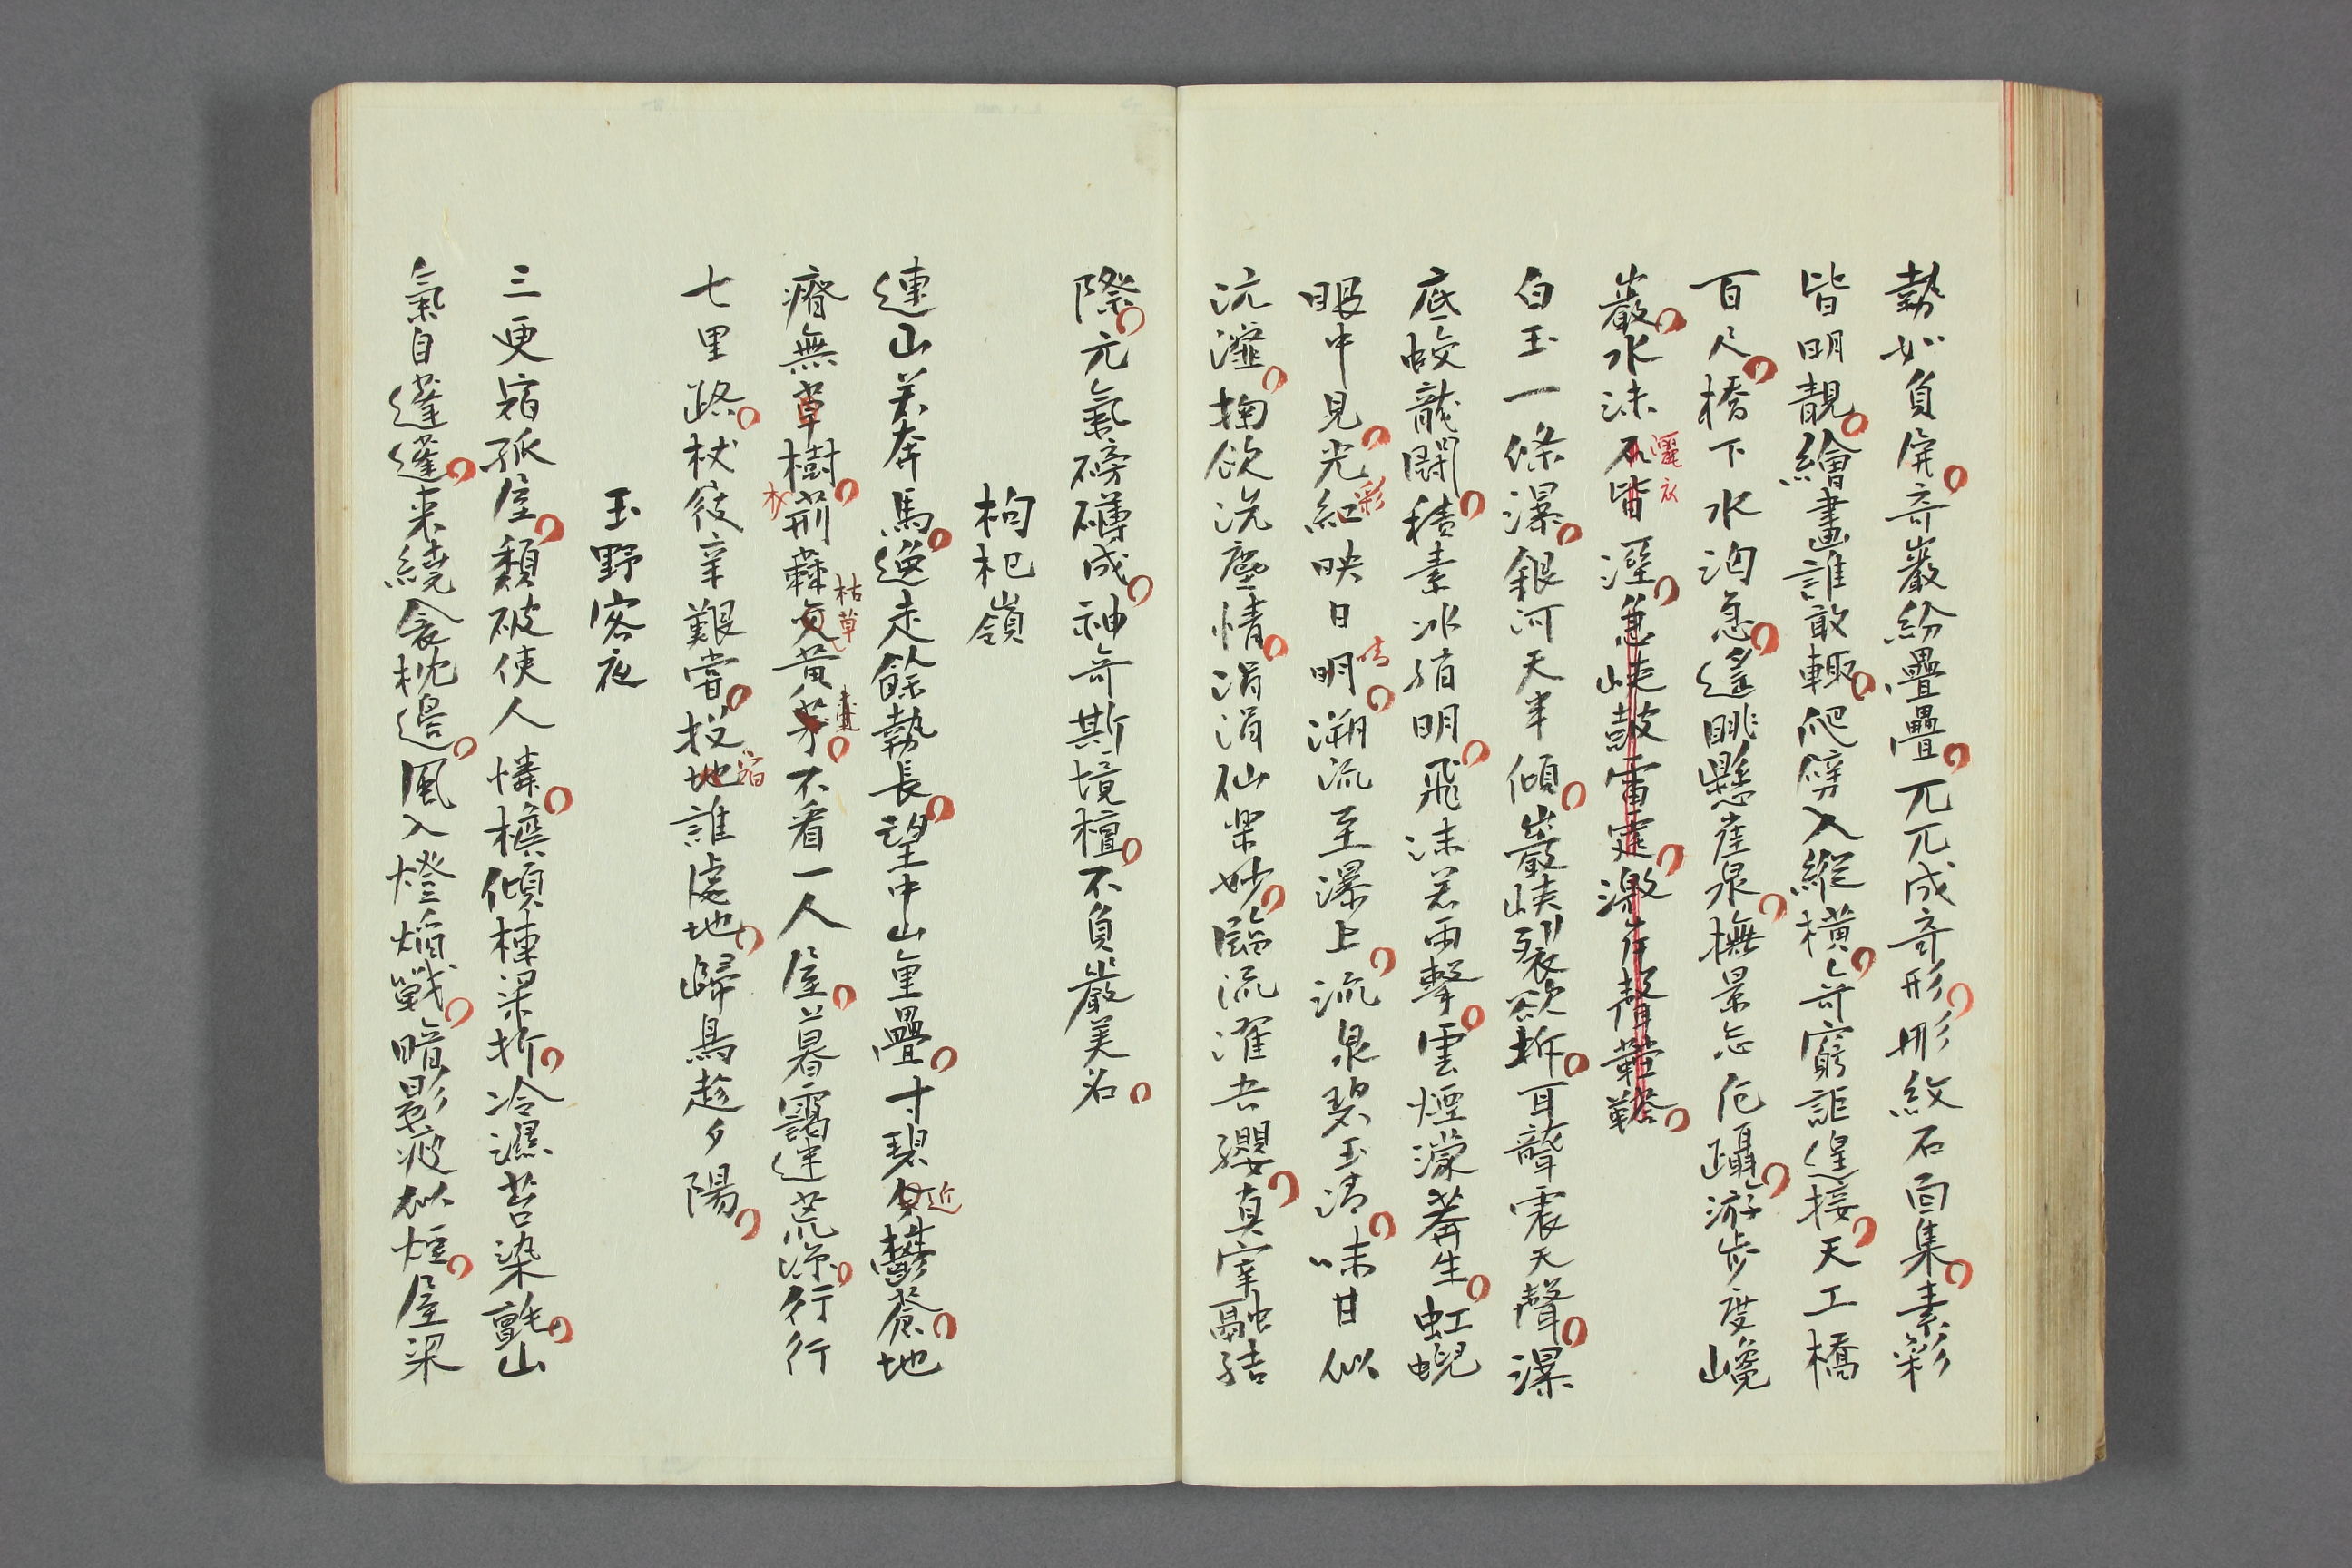 勢如負屏奇巖紛疊疊兀兀成奇形形紋石面集素彩
皆明靚繪畫誰敢輙爬劈入縱橫奇窮詎遑接天工橋
百尺橋下水洶急遙眺懸崖泉撫景忘危躡游步度巉
巖水沫石皆溼急峡鼓雷霆激岸聲鞺鞳
灑衣
白玉一條瀑銀河天半傾巖峡引裂欲拆耳聾震天聲瀑
底蛟龍鬪積素冰綃明飛沫若雨擊雲煙濛莽生虹蜺
眼中見光紅映日明溯流至瀑上流泉碧玉清味甘似
彩
晴
沆瀣掬飲洗塵情涓涓仙樂妙臨流濯吾纓真宰融結
際元氣磅礴成神奇斯境擅不負巖美名
枸杞嶺
連山若奔馬逸走餘勢長望中山重疊寸碧分鬱蒼地
近
瘠無草樹荊蘇交黃茅不看一人屋暮靄迷荒涼行行
枯草
七里路杖屐辛艱嘗投地誰處地歸鳥趁夕陽
宿
玉野客夜
三更宿孤屋頹破使人憐櫎傾棟梁折冷濕苔染氈山
氣自蓬蓬来繞衾枕邊風入燈焰戰暗影疲似煙屋梁